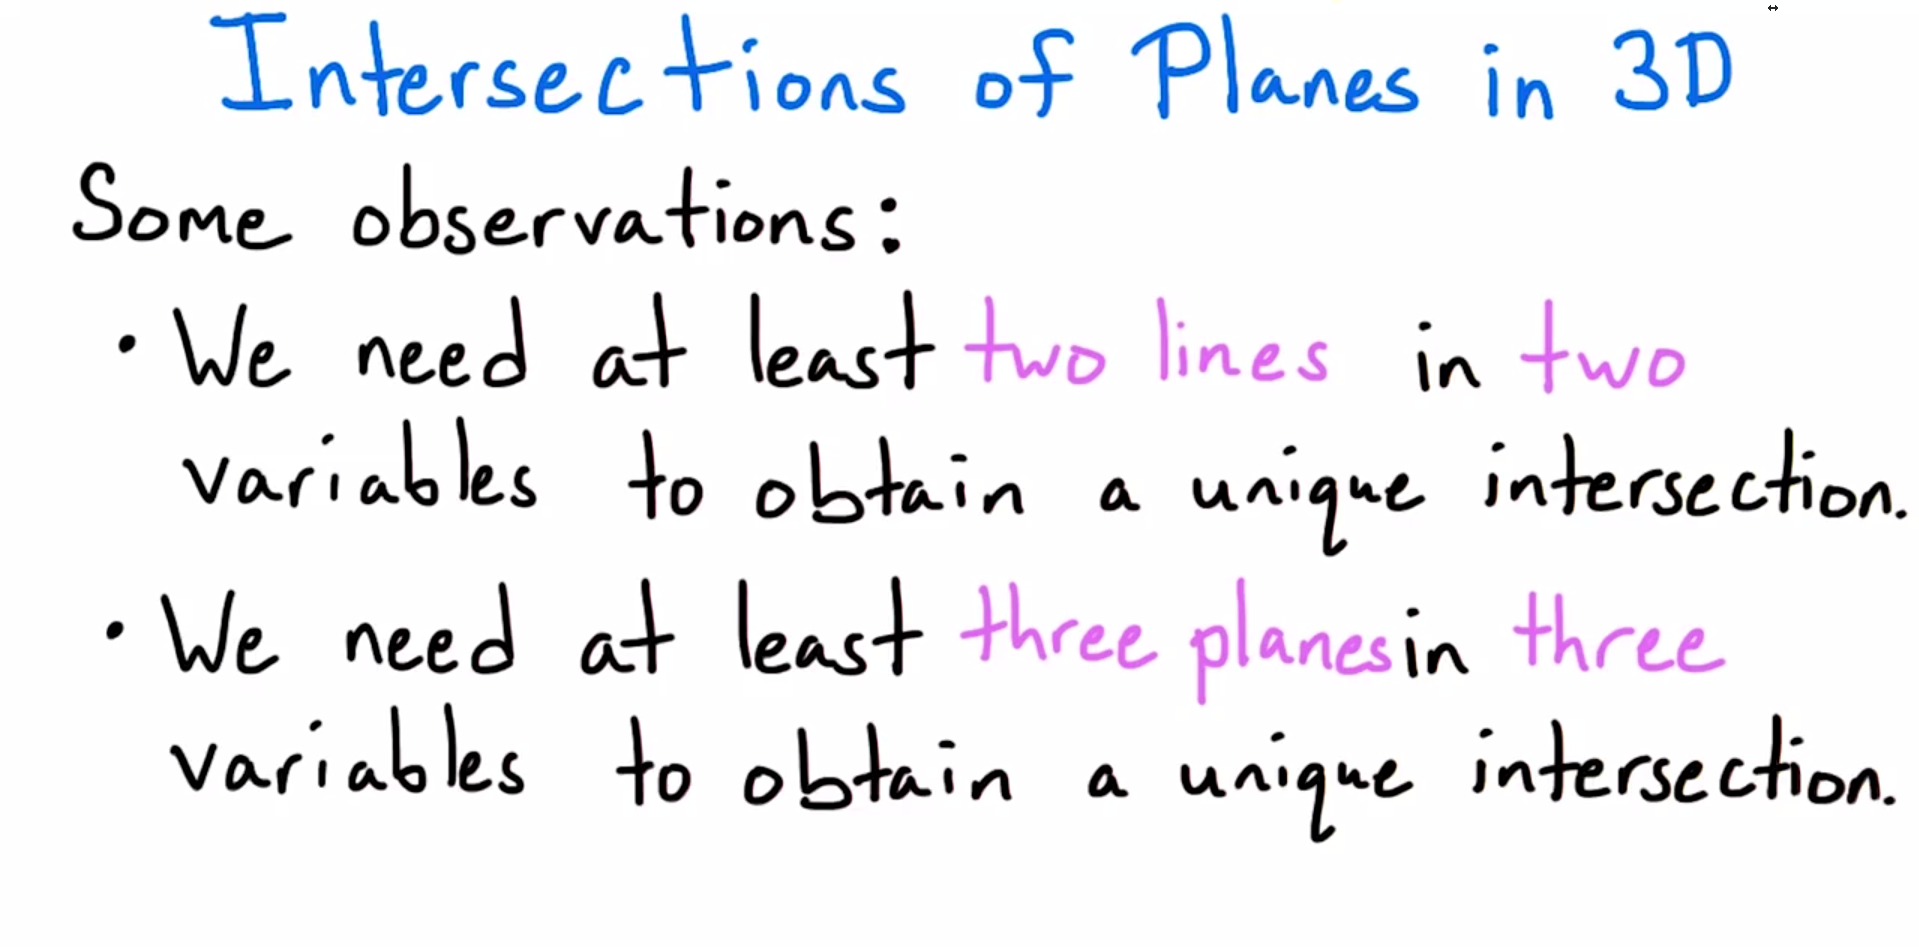 Intersections of Planes in 3D
Some observations:
• We need at least two lines in two
variables to obtain a unique intersection.
• We need at least three planes in three
variables to obtain a unique intersection.